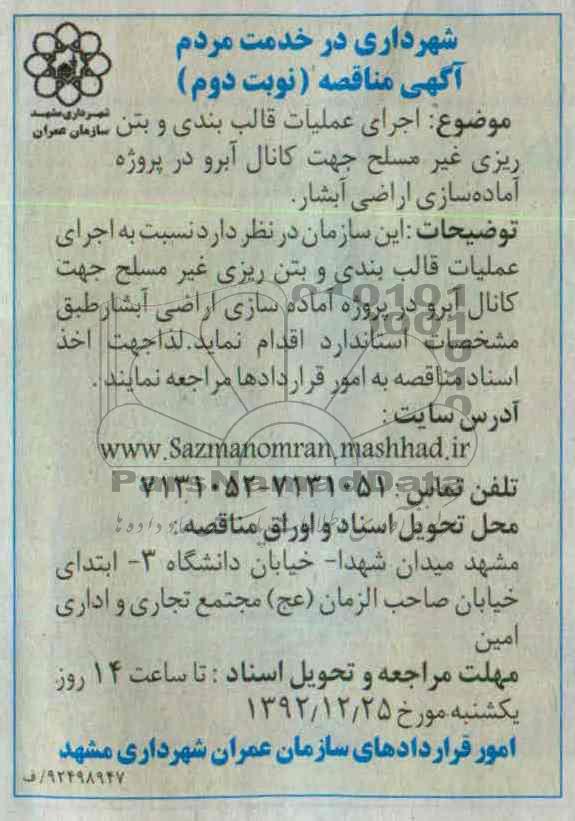 شهرداری در خدمت مردم
آگهی مناقصه (نوبت دوم)
شهرداری مشهد
سازمان عمران
موضوع: اجرای عملیات قالب بندی و بتن
ریزی غیر مسلح جهت کانال آبرو در پروژه
آماده‌سازی اراضی آبشار.
توضیحات: این سازمان در نظر دارد نسبت به اجرای
عملیات قالب بندی و بتن ریزی غیر مسلح جهت
کانال آبرو در پروژه آماده سازی اراضی آبشار طبق
مشخصات استاندارد اقدام نماید. لذا جهت اخذ
اسناد مناقصه به امور قراردادها مراجعه نمایند.
آدرس سایت:
www.Sazmanomran.mashhad.ir
ParsNamadData
تلفن تماس: ۷۱۳۱۰۵۱-۷۱۳۱۰۵۲
محل تحویل اسناد و اوراق مناقصه:
مشهد میدان شهدا- خیابان دانشگاه ۳- ابتدای
خیابان صاحب الزمان (عج) مجتمع تجاری و اداری
امین
مهلت مراجعه و تحویل اسناد: تا ساعت ۱۴ روز
یکشنبه مورخ ۱۳۹۲/۱۲/۲۵
امور قراردادهای سازمان عمران شهرداری مشهد
۹۲۴۹۸۹۴۷/ف